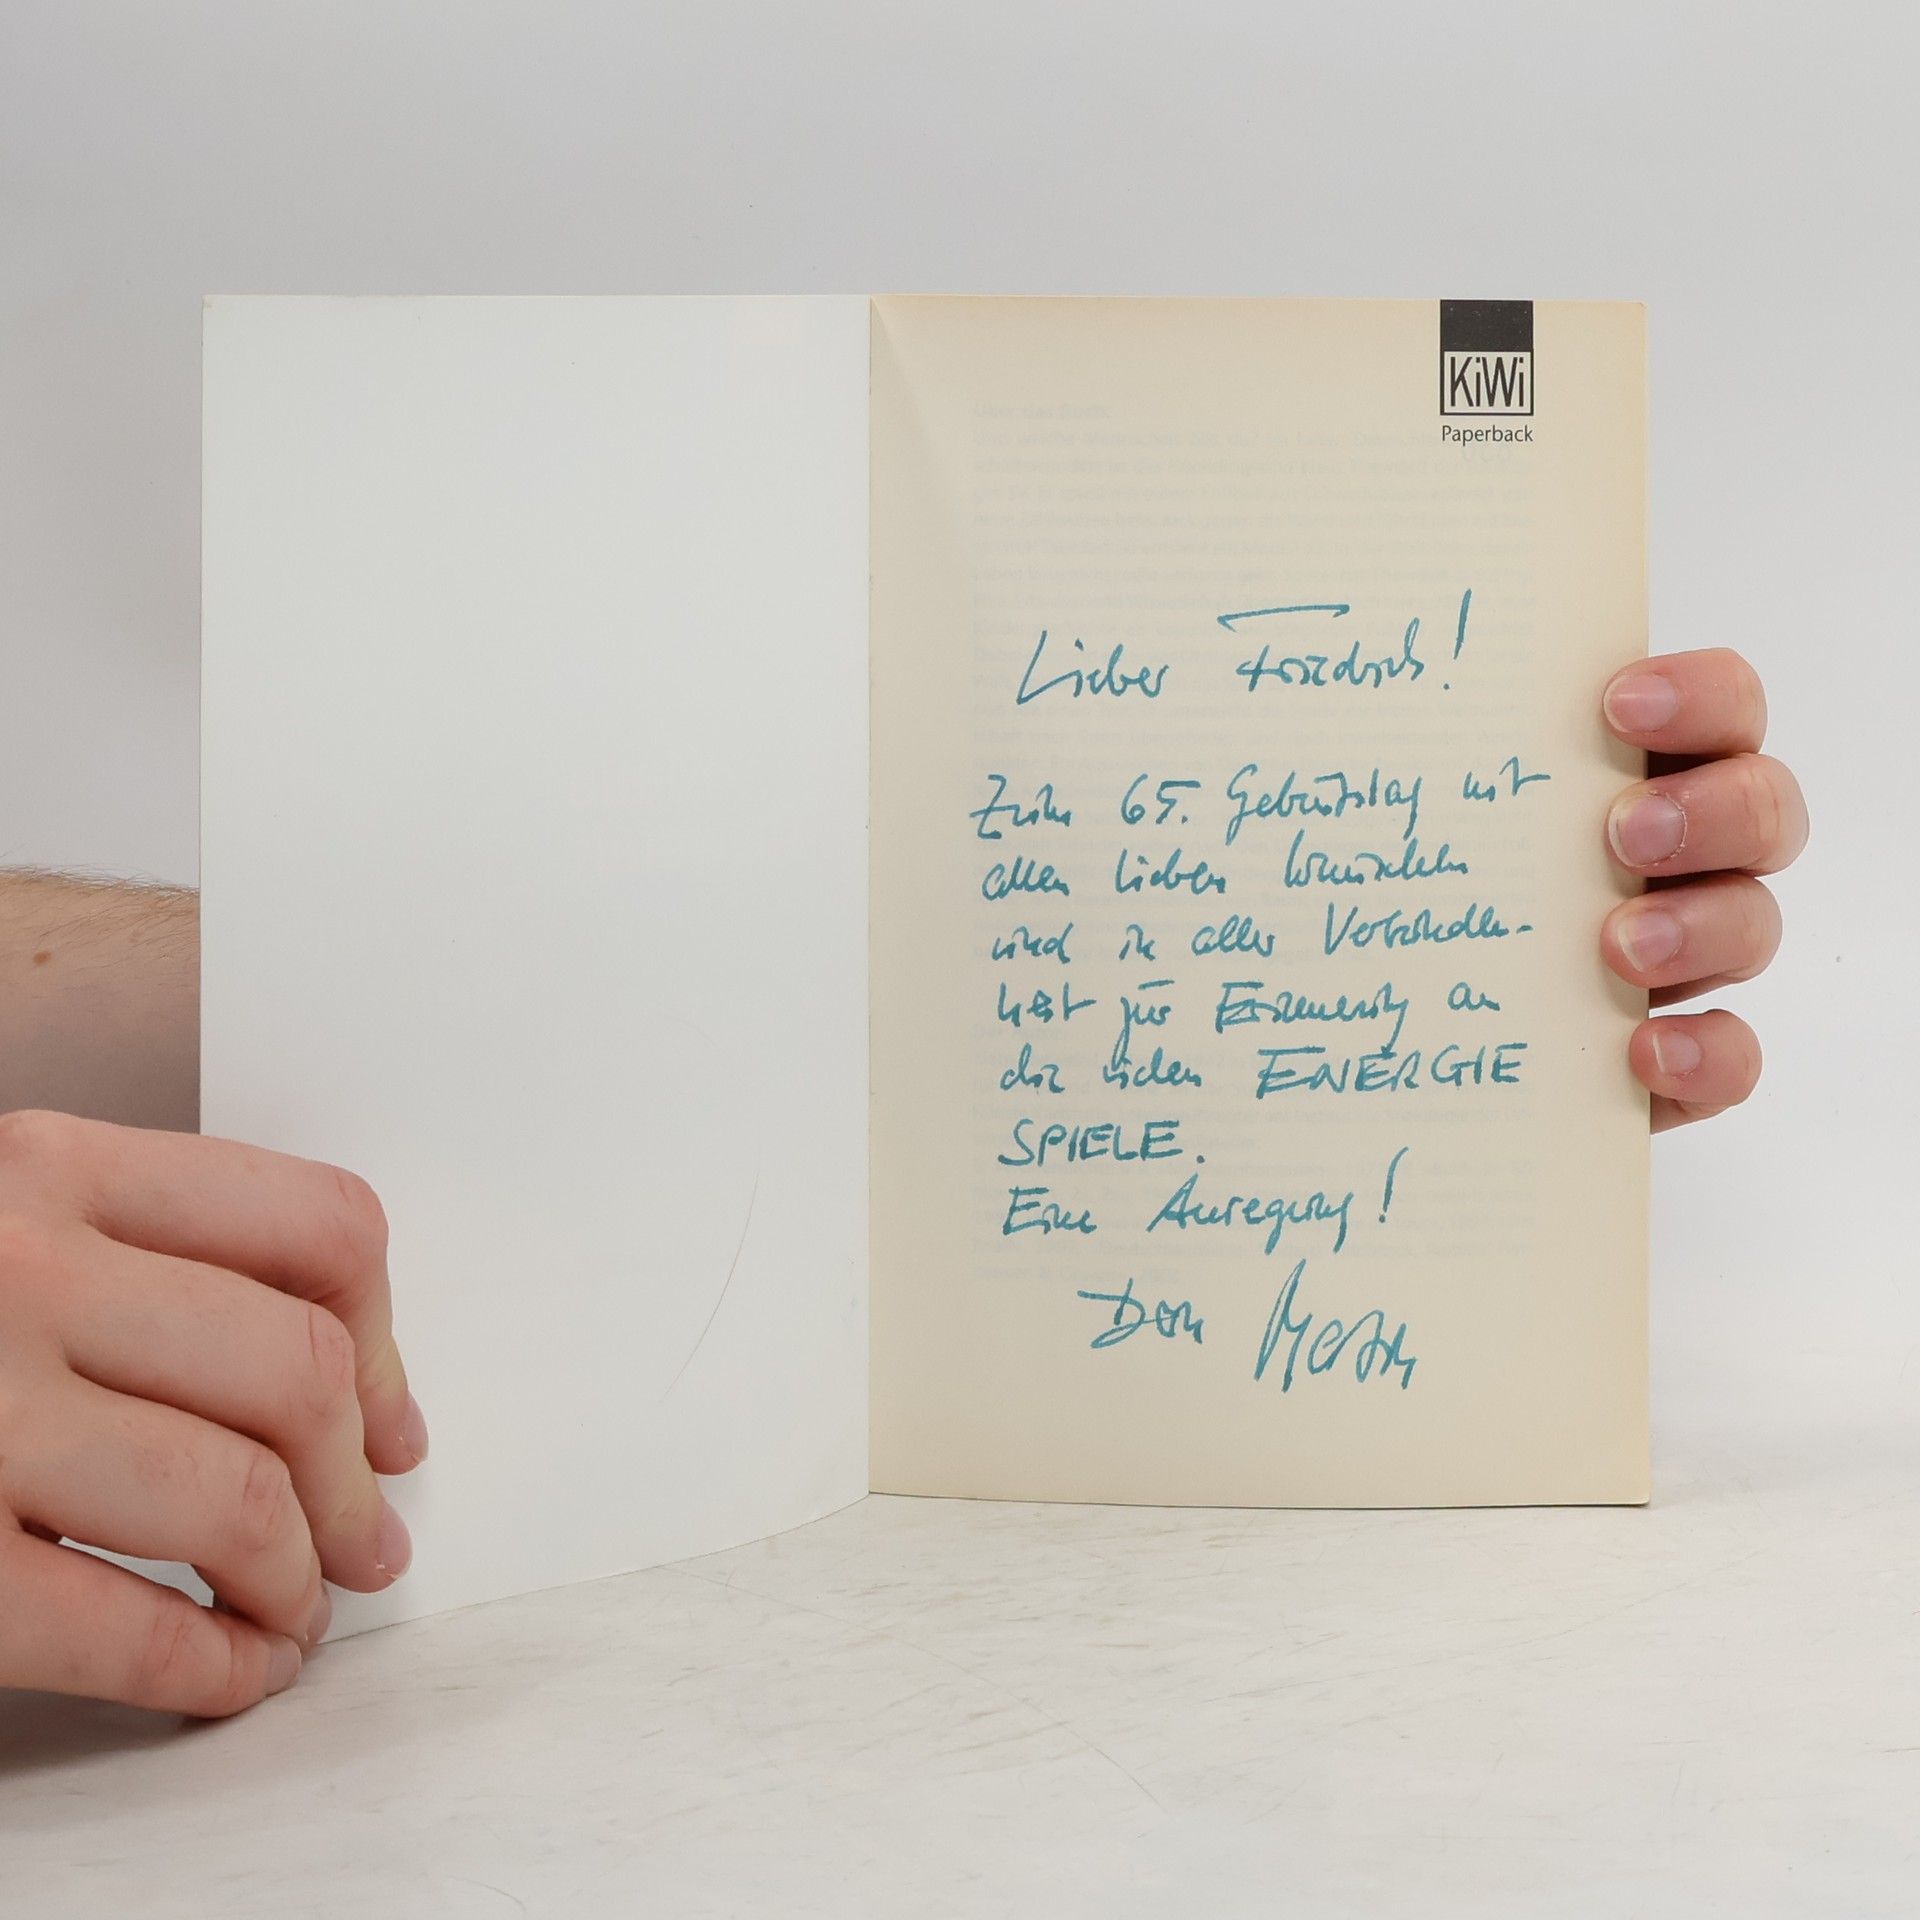 KiWi
Paperback
Lieber Friedrich!
Zum 65. Geburtstag mit
allen lieben Wünschen
und in aller Verbunden-
heit zur Erinnerung an
die vielen ENERGIE
SPIELE.
Eine Anregung!
Dein